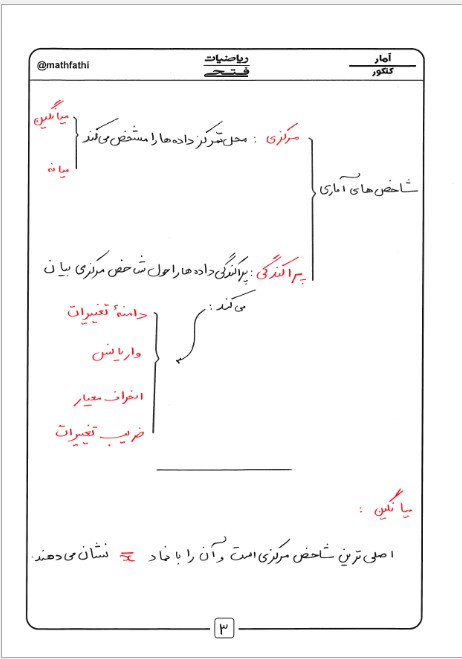 آمار
کنکور
ریاضیات
فتحی
@mathfathi
شاخص های آماری
مرکزی : محل تمرکز داده ها را مشخص می کند
میانگین
میانه
پراکندگی : پراکندگی داده ها را حول شاخص مرکزی بیان
می کند :
دامنهٔ تغییرات
واریانس
انحراف معیار
ضریب تغییرات
میانگین :
اصلی ترین شاخص مرکزی است و آن را با نماد x̄ نشان می دهند.
۳